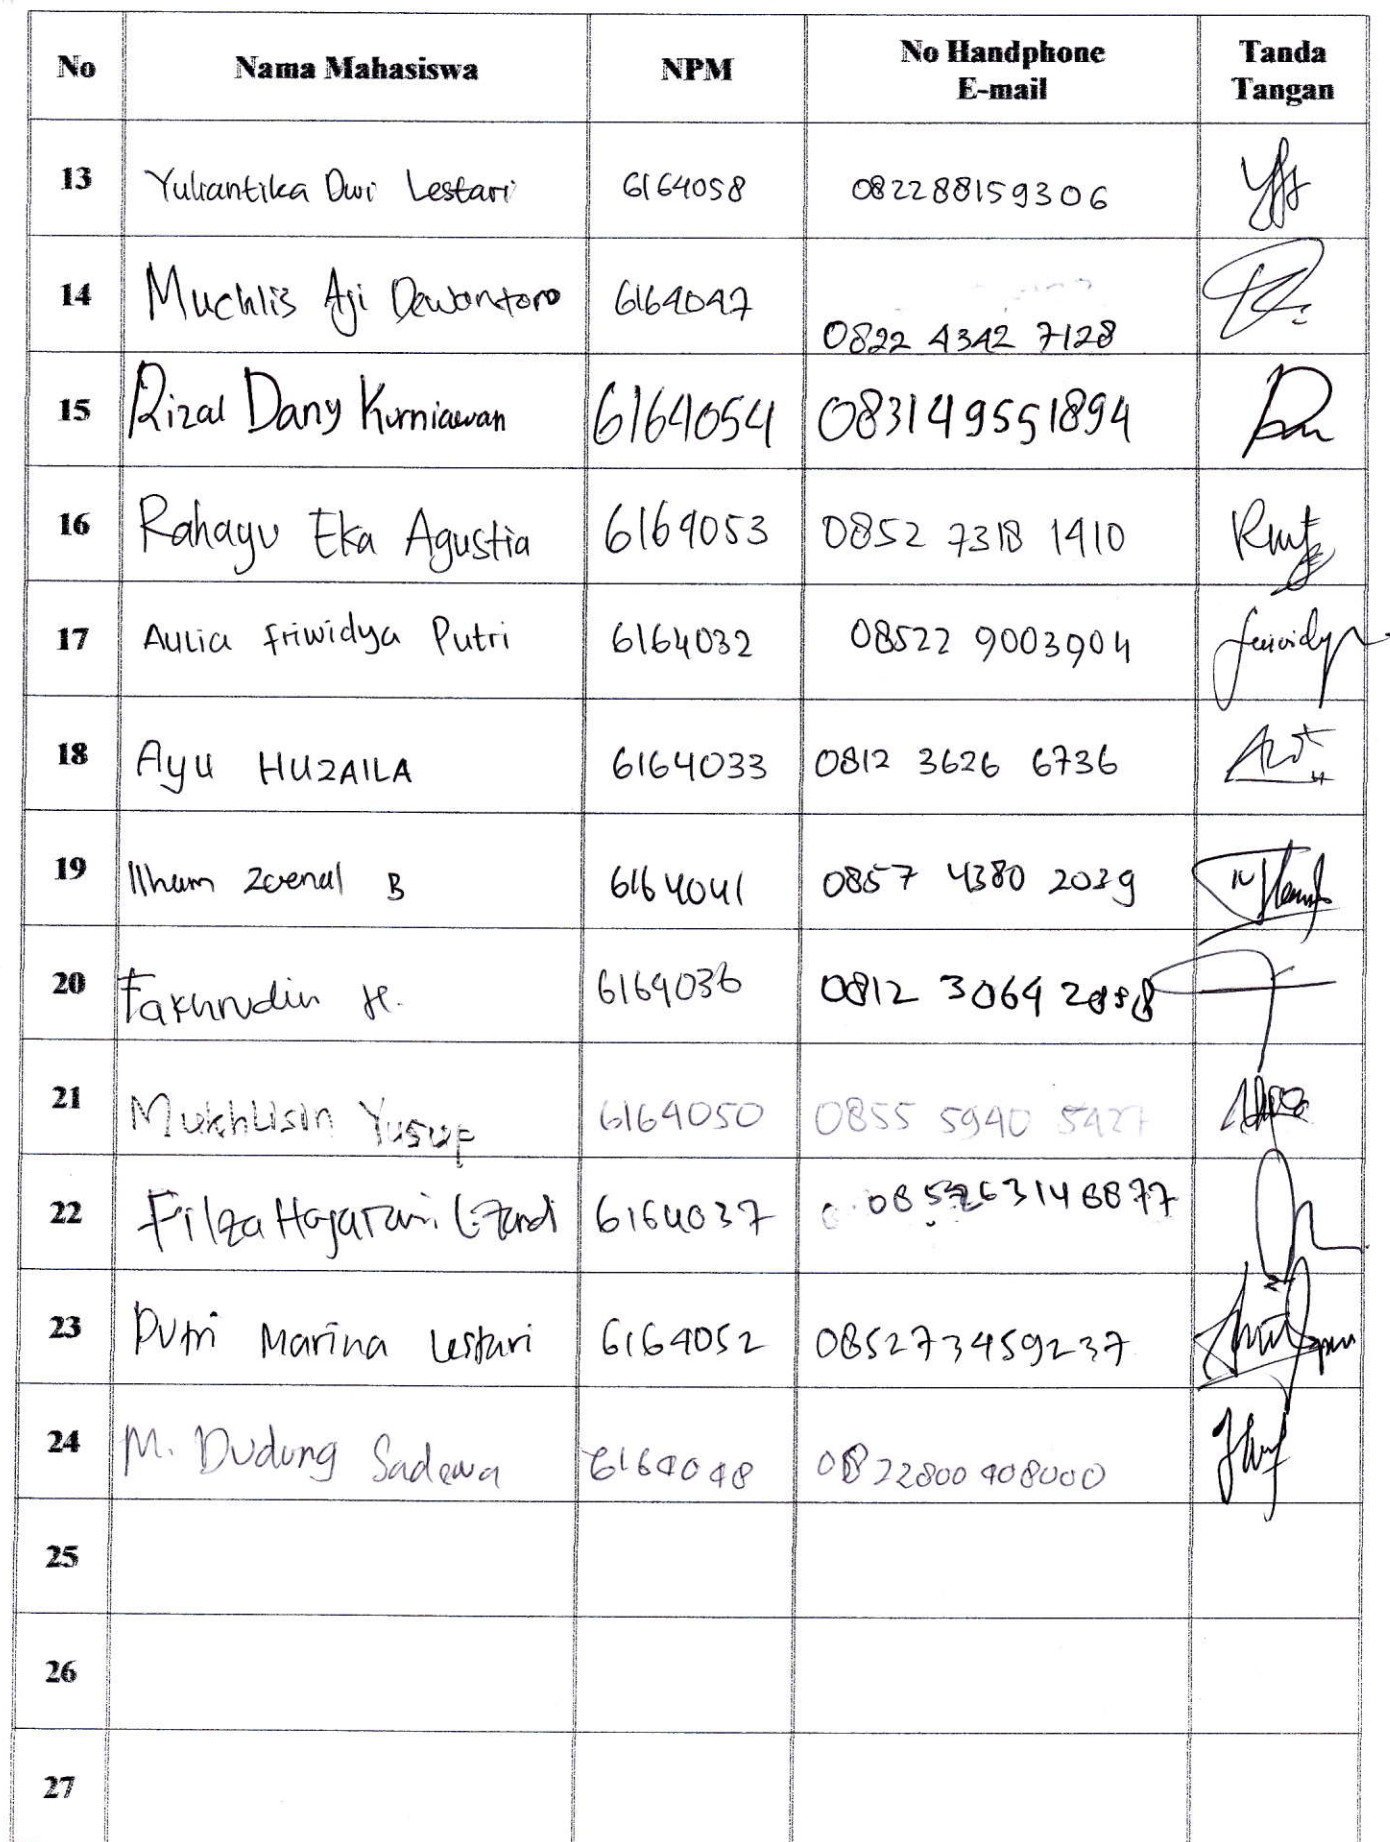 No Nama Mahasiswa NPM No Handphone E-mail Tanda Tangan
13 Yuliantika Dwi Lestari 6164058 082288159306
14 Muchlis Aji Dewantoro 6164047 0822 4342 7128
15 Rizal Dany Kurniawan 6164054 083149551894
16 Rahayu Eka Agustia 6164053 0852 7318 1410
17 Aulia friwidya Putri 6164032 08522 9003904
18 Ayu HUZAILA 6164033 0812 3626 6736
19 Ilham Zaenal B 6164041 0857 4380 2039
20 Fakhrudin H. 6164036 0812 3064
21 Mukhlisin Yusup 6164050 0855 5940 5427
22 Filza 6164037
23 Putri Marina Lestari 6164052 085273459237
24 M. Dudung Sadewa 6164048 0822800408000
25
26
27